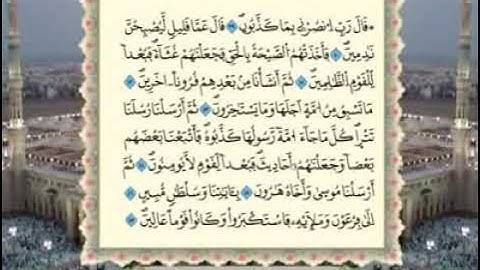 قَالَ رَبِّ اِ۟نصُرْنِے بِمَا كَذَّبُونِۖ قَالَ عَمَّا قَلِيلٖ لَّيُصْبِحُنَّ
نَٰدِمِينَۖ فَأَخَذَتْهُمُ اُ۬لصَّيْحَةُ بِالْحَقِّ فَجَعَلْنَٰهُمْ غُثَآءٗۖ فَبُعْداٗ
لِّلْقَوْمِ اِ۬لظَّٰلِمِينَۖ ثُمَّ أَنشَأْنَا مِنۢ بَعْدِهِمْ قُرُوناً اٰخَرِينَۖ
مَا تَسْبِقُ مِنُ امَّةٍ اَجَلَهَا وَمَا يَسْتَٰخِرُونَۖ ثُمَّ أَرْسَلْنَا رُسُلَنَا
تَتْرَاۖ كُلَّ مَا جَآءَ امَّةٗ رَّسُولُهَا كَذَّبُوهُۖ فَأَتْبَعْنَا بَعْضَهُم
بَعْضاٗ وَجَعَلْنَٰهُمُۥٓ أَحَادِيثَۖ فَبُعْداٗ لِّقَوْمٖ لَّا يُومِنُونَۖ ثُمَّ
أَرْسَلْنَا مُوسۭيٰ وَأَخَاهُ هَٰرُونَ بِـَٔايَٰتِنَا وَسُلْطَٰنٖ مُّبِينٍ
اِلَيٰ فِرْعَوْنَ وَمَلَإِيْهِۦ فَاسْتَكْبَرُواْ وَكَانُواْ قَوْماً عَالِينَۖ